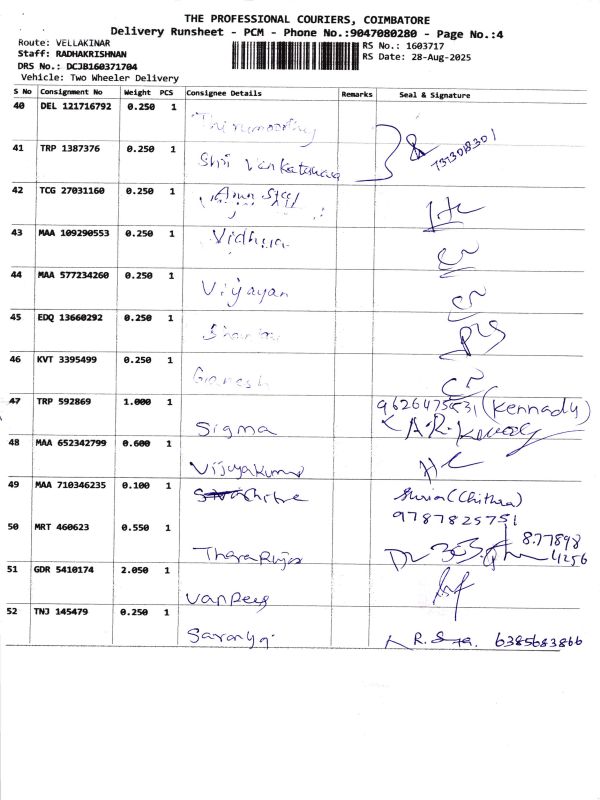 THE PROFESSIONAL COURIERS, COIMBATORE
Delivery Runsheet - PCM - Phone No.:9047080280 - Page No.:4
Route: VELLAKINAR
RS No.: 1603717
Staff: RADHAKRISHNAN
RS Date: 28-Aug-2025
DRS No.: DCJB160371704
Vehicle: Two Wheeler Delivery
S No Consignment No Weight PCS Consignee Details Remarks Seal & Signature
40 DEL 121716792 0.250 1
Thirumoorthy
41 TRP 1387376 0.250 1
Shri Venkateswara
42 TCG 27031160 0.250 1
43 MAA 109290553 0.250 1
44 MAA 577234260 0.250 1
Vijayan
45 EDQ 13660292 0.250 1
46 KVT 3395499 0.250 1
Ganesh
47 TRP 592869 1.000 1
(Kennady)
Sigma A.R.
48 MAA 652342799 0.600 1
Vijayakumar
49 MAA 710346235 0.100 1
(Chithra)
9787825751
50 MRT 460623 0.550 1
877898
4256
51 GDR 5410174 2.050 1
52 TNJ 145479 0.250 1
Saranya 6385683866